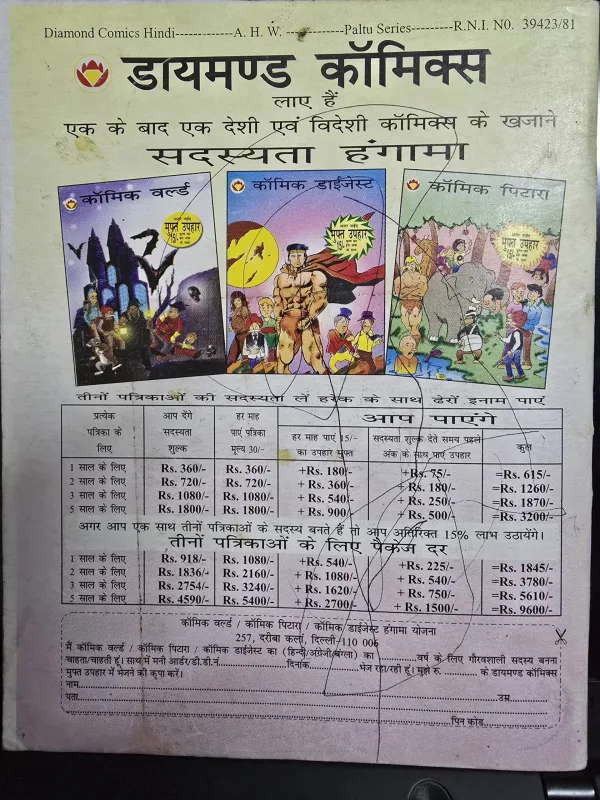 Diamond Comics Hindi-------------A. H. W. -------------Paltu Series---------R.N.I. N0. 39423/81
डायमण्ड कॉमिक्स
लाए हैं
एक के बाद एक देशी एवं विदेशी कॉमिक्स के खजाने
सदस्यता हंगामा
कॉमिक वर्ल्ड
मुफ्त उपहार
कॉमिक डाईजेस्ट
मुफ्त उपहार
कॉमिक पिटारा
मुफ्त उपहार
तीनों पत्रिकाओं की सदस्यता लें हरेक के साथ ढेरों इनाम पाएं
प्रत्येक पत्रिका के लिए
आप देंगे सदस्यता शुल्क
हर माह पाएं पत्रिका मूल्य 30/-
आप पाएंगे
हर माह पाएं 15/- का उपहार मुफ्त
सदस्यता शुल्क देते समय पहले अंक के साथ पाएं उपहार
कुल
1 साल के लिए Rs. 360/- Rs. 360/- +Rs. 180/- +Rs. 75/- =Rs. 615/-
2 साल के लिए Rs. 720/- Rs. 720/- + Rs. 360/- + Rs. 180/- =Rs. 1260/-
3 साल के लिए Rs. 1080/- Rs. 1080/- + Rs. 540/- + Rs. 250/- =Rs. 1870/-
5 साल के लिए Rs. 1800/- Rs. 1800/- + Rs. 900/- + Rs. 500/- =Rs. 3200/-
अगर आप एक साथ तीनों पत्रिकाओं के सदस्य बनते हैं तो आप अतिरिक्त 15% लाभ उठायेंगे।
तीनों पत्रिकाओं के लिए पैकेज दर
1 साल के लिए Rs. 918/- Rs. 1080/- +Rs. 540/- +Rs. 225/- =Rs. 1845/-
2 साल के लिए Rs. 1836/- Rs. 2160/- + Rs. 1080/- + Rs. 540/- =Rs. 3780/-
3 साल के लिए Rs. 2754/- Rs. 3240/- + Rs. 1620/- + Rs. 750/- =Rs. 5610/-
5 साल के लिए Rs. 4590/- Rs. 5400/- + Rs. 2700/- + Rs. 1500/- =Rs. 9600/-
कॉमिक वर्ल्ड / कॉमिक पिटारा / कॉमिक डाईजेस्ट हंगामा योजना
257, दरीबा कलां, दिल्ली-110 006
मैं कॉमिक वर्ल्ड / कॉमिक पिटारा / कॉमिक डाईजेस्ट का (हिन्दी/अंग्रेजी/बंगला) का ............वर्ष के लिए गौरवशाली सदस्य बनना
चाहता/चाहती हूं। साथ में मनी आर्डर/डी.डी.नं...................दिनांक................भेज रहा/रही हूं। मुझे रु........... के डायमण्ड कॉमिक्स
मुफ्त उपहार में भेजने की कृपा करें।
नाम.......................................................................................................................
पता.......................................................................................उम्र.......................
.......................................................................................पिन कोड.......................